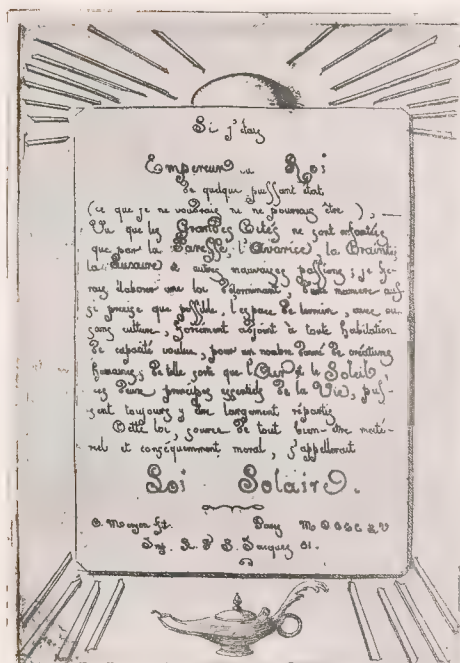 Si j'étais
Empereur ou Roi
de quelque puissant état
(ce que je ne voudrais ne ne pourrais être),
Vu que les Grandes Cités ne sont enfantées
que par la Paresse, l'Avarice, la Crainte,
la Luxure & autres mauvaises passions; je fe-
rais élaborer une loi déterminant, d'une manière aus-
si précise que possible, l'espace de terrain, avec ou
sans culture, forcément adjoint à toute habitation
de capacité voulue, pour un nombre donné de créatures
humaines; de telle sorte que l'Air & le Soleil,
ces deux principes essentiels de la Vie, puis-
sent toujours y être largement répartis.
Cette loi, source de tout bien-être maté-
riel et conséquemment moral, s'appellerait
Loi Solaire.
C. Meryon fct. Paris MDCCCLV
Imp. R. S. Jacques